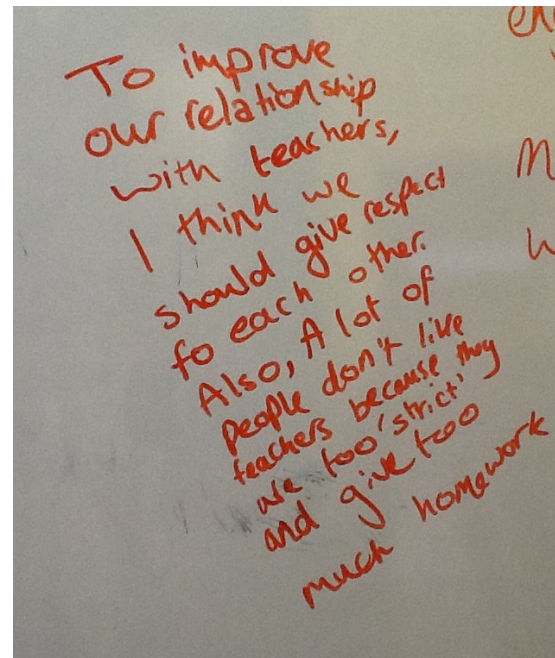 To improve
our relationship
with teachers,
I think we
should give respect
to each other.
Also, A lot of
people don't like
teachers because they
are too 'strict'
and give too
much homework